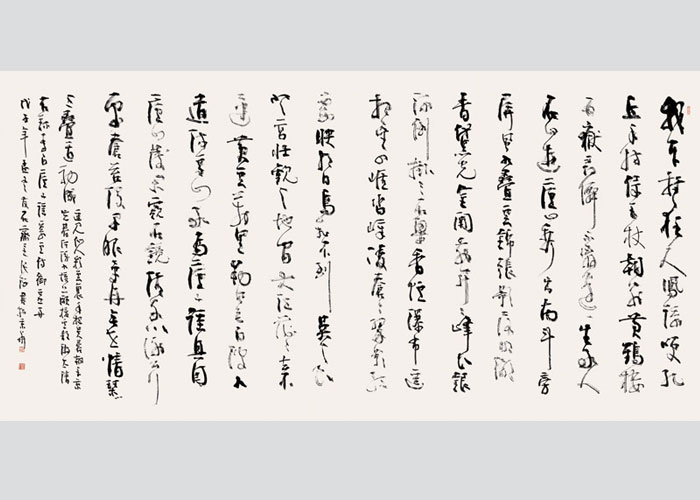 我本楚狂人鳳歌笑孔
丘手持綠玉杖朝別黃鶴樓
五嶽尋僊不辭遠一生好入
名山遊廬山秀出南斗旁
屏風九疊雲錦張影落明湖
青黛光金闕前開二峰長銀
河倒掛三石梁香爐瀑布遙
相望迴崖沓嶂凌蒼蒼翠影紅
霞映朝日鳥飛不到吳天長
登高壯觀天地間大江茫茫去不
還黃雲萬里動風色白波九
道流雪山好為廬山謠興因
廬山發閑窺石鏡清我心謝公行
處蒼苔沒早服還丹無世情琴
心三疊道初成遙見仙人彩雲裏手把芙蓉朝玉京
先期汗漫九垓上願接盧敖遊太清
右錄李白廬山謠寄盧侍御虛舟
戊子年